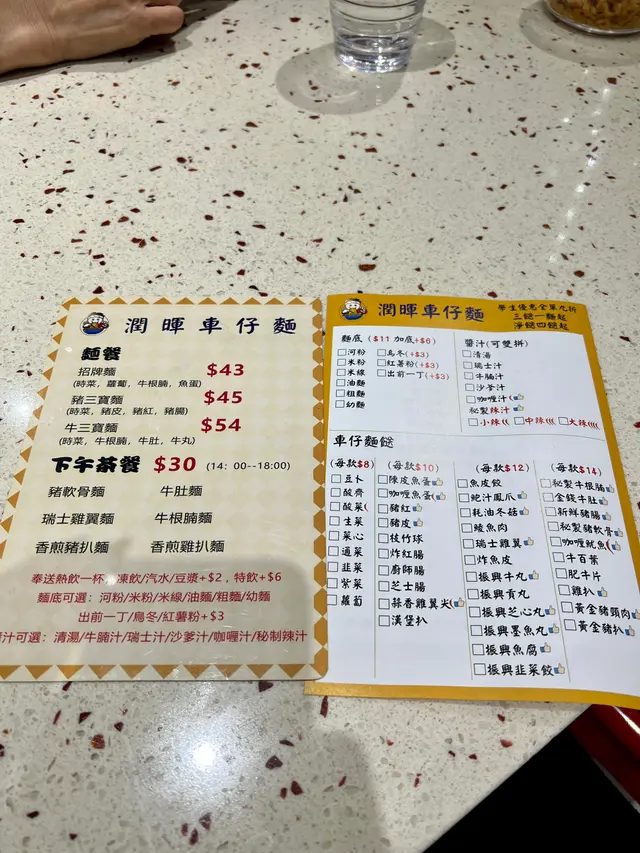 潤暉車仔麵
麵餐
招牌麵 $43
(時菜，蘿蔔，牛根腩，魚蛋)
豬三寶麵 $45
(時菜，豬皮，豬紅，豬腸)
牛三寶麵 $54
(時菜，牛根腩，牛肚，牛丸)
下午茶餐 $30 (14：00--18:00)
豬軟骨麵 牛肚麵
瑞士雞翼麵 牛根腩麵
香煎豬扒麵 香煎雞扒麵
奉送熱飲一杯，凍飲/汽水/豆漿+$2，特飲+$6
麵底可選：河粉/米粉/米線/油麵/粗麵/幼麵
出前一丁/烏冬/紅薯粉+$3
汁可選：清湯/牛腩汁/瑞士汁/沙爹汁/咖喱汁/秘制辣汁
潤暉車仔麵
學生優惠全單九折
三餸一麵起
淨餸四餸起
麵底 ($11 加底+$6)
河粉 烏冬(+$3)
米粉 紅薯粉(+$3)
米線 出前一丁(+$3)
油麵
粗麵
幼麵
醬汁(可雙拼)
清湯
瑞士汁
牛腩汁
沙爹汁
咖喱汁
秘製辣汁
小辣 中辣 大辣
車仔麵餸
(每款$8)
豆卜
酸齋
酸菜
生菜
菜心
通菜
韭菜
紫菜
蘿蔔
(每款$10)
陳皮魚蛋
咖喱魚蛋
豬紅
豬皮
枝竹球
炸紅腸
廚師腸
芝士腸
蒜香雞翼尖
漢堡扒
(每款$12)
魚皮餃
蛇汁鳳爪
耗油冬菇
鯪魚肉
瑞士雞翼
炸魚皮
振興牛丸
振興貢丸
振興芝心丸
振興墨魚丸
振興魚腐
振興韭菜餃
(每款$14)
秘製牛根腩
金錢牛肚
新鮮豬腸
秘製豬軟骨
咖喱魷魚
牛百葉
肥牛片
雞扒
黃金豬頸肉
黃金豬扒